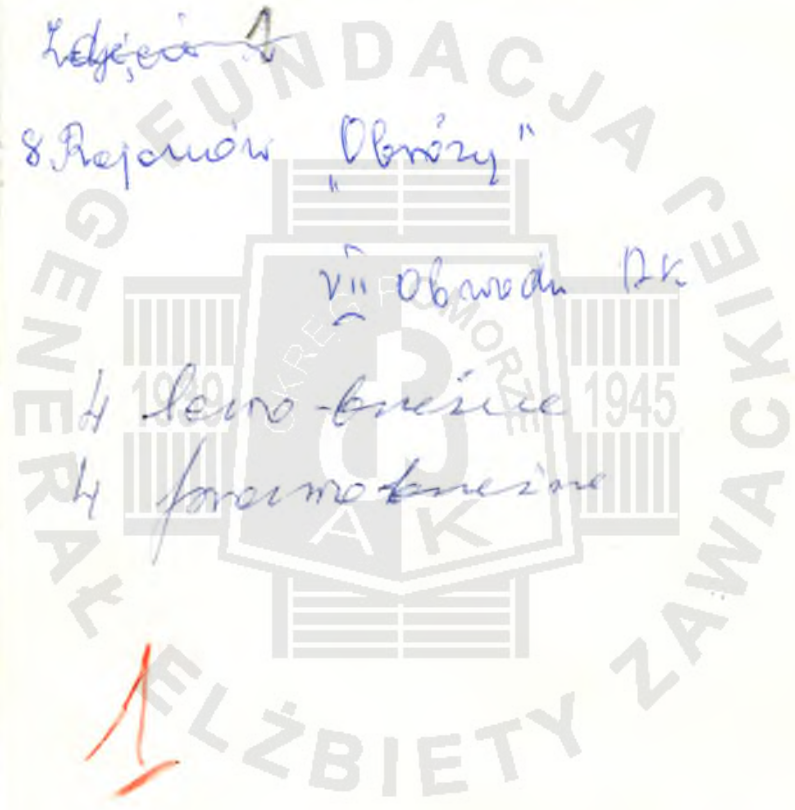 Zdjęcie 1
8 Rejonów „Obroży"
VII Obwodu AK
4 lewo-brzeżne
4 prawobrzeżne
1
FUNDACJA JEJ
GENERAŁ ELŻBIETY ZAWACKIEJ
OKRĘG POMORZE
1939
1945
AK